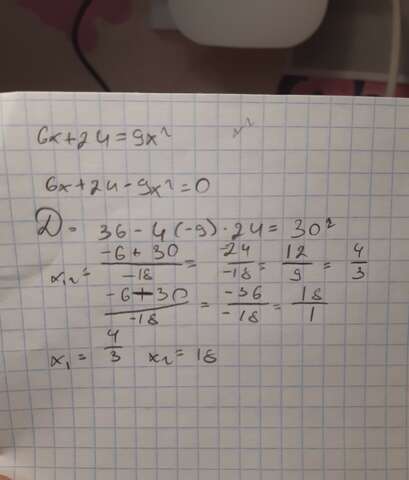 6x+24=9x² x²
6x+24-9x²=0
D = 36-4(-9)·24= 30²
x₁,₂= \frac{-6+30}{-18} = \frac{-24}{-18} = \frac{12}{9} = \frac{4}{3}
\frac{-6+30}{-18} = \frac{-36}{-18} = \frac{18}{1}
x₁= \frac{4}{3} x₂= 18